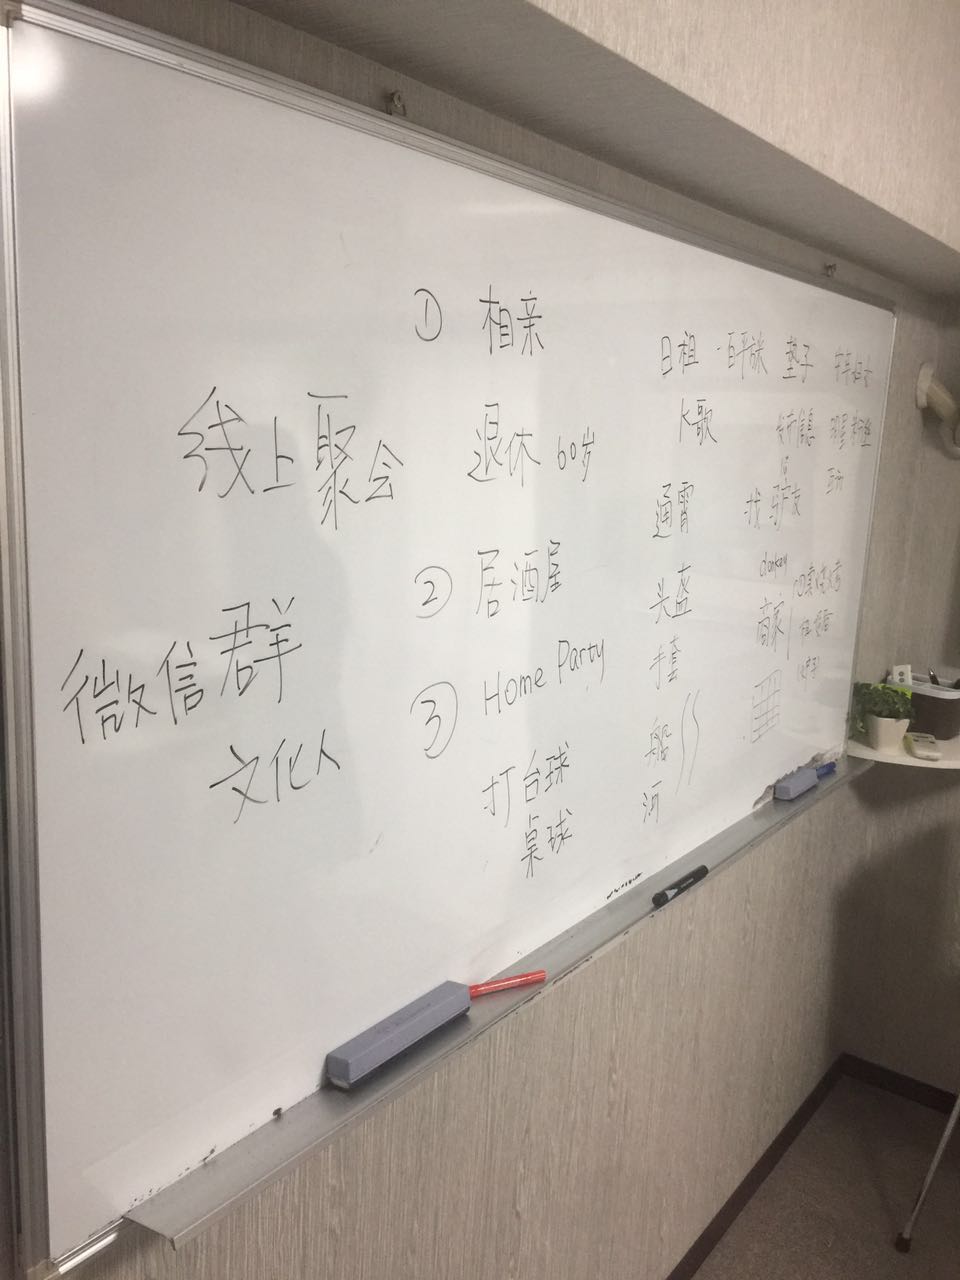 线上聚会
微信群
文化人
① 相亲
退休 60岁
② 居酒屋
③ Home Party
打台球
桌球
日租 一百平米 垫子
K歌
通宵
头盔
手套
船
河
发布信息
找驴友
donkey
商家